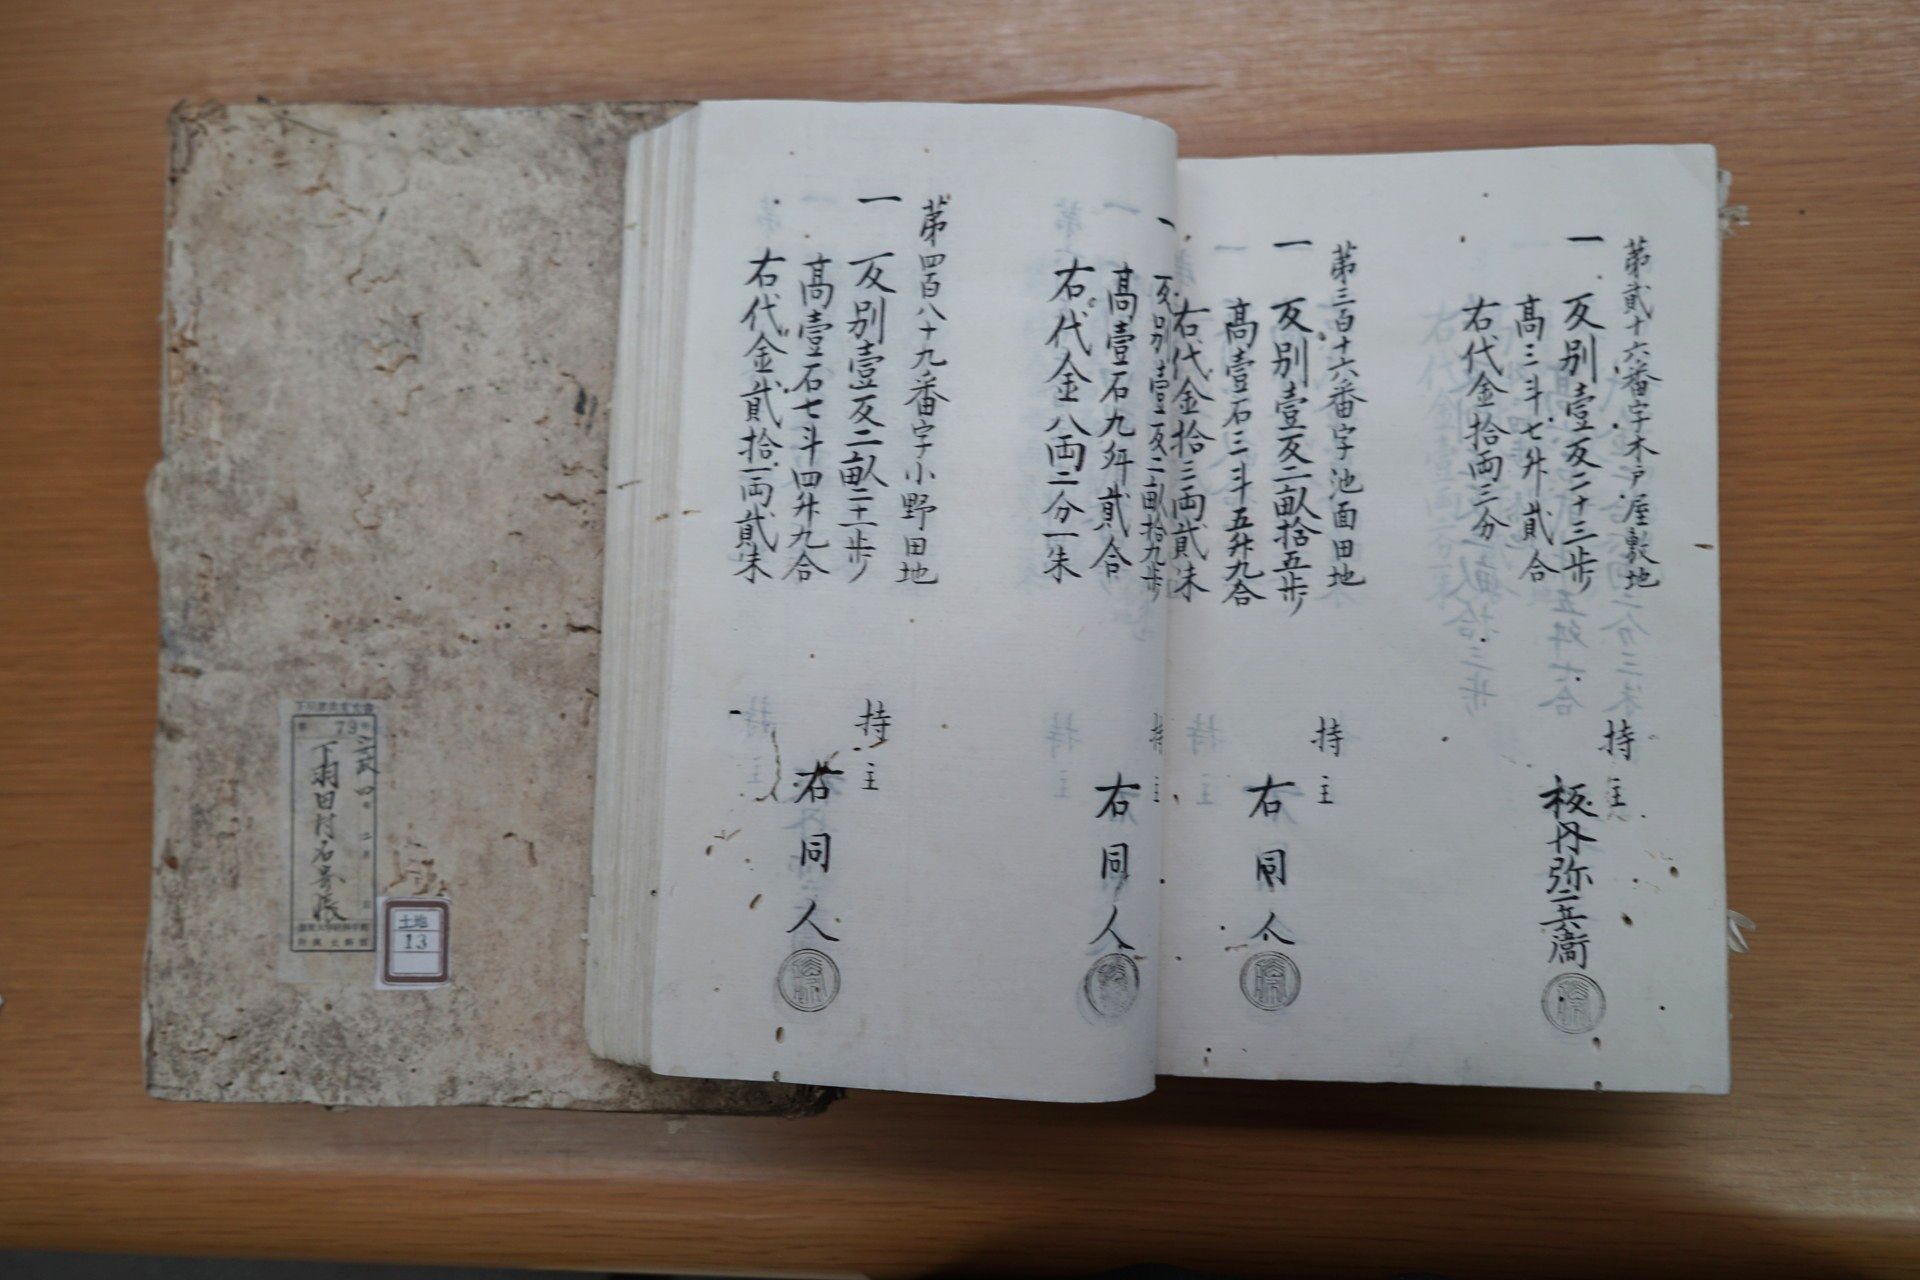 第貳十六番字木戸屋敷地
一 反別壹反二十三歩
高三斗七升貳合
右代金拾両三分
持主
板丹弥三兵衞
第三百十六番字池面田地
一 反別壹反二畝拾五歩
高壹石三斗五升九合
右代金拾三両貳朱
持主
右同人
一 反別壹反二畝拾九歩
高壹石九升貳合
右代金八両二分一朱
持主
右同人
第四百八十九番字小野田地
一 反別壹反二畝二十一歩
高壹石七斗四升九合
右代金貳拾一両貳朱
持主
右同人
79
下羽田村名寄帳
土地
13